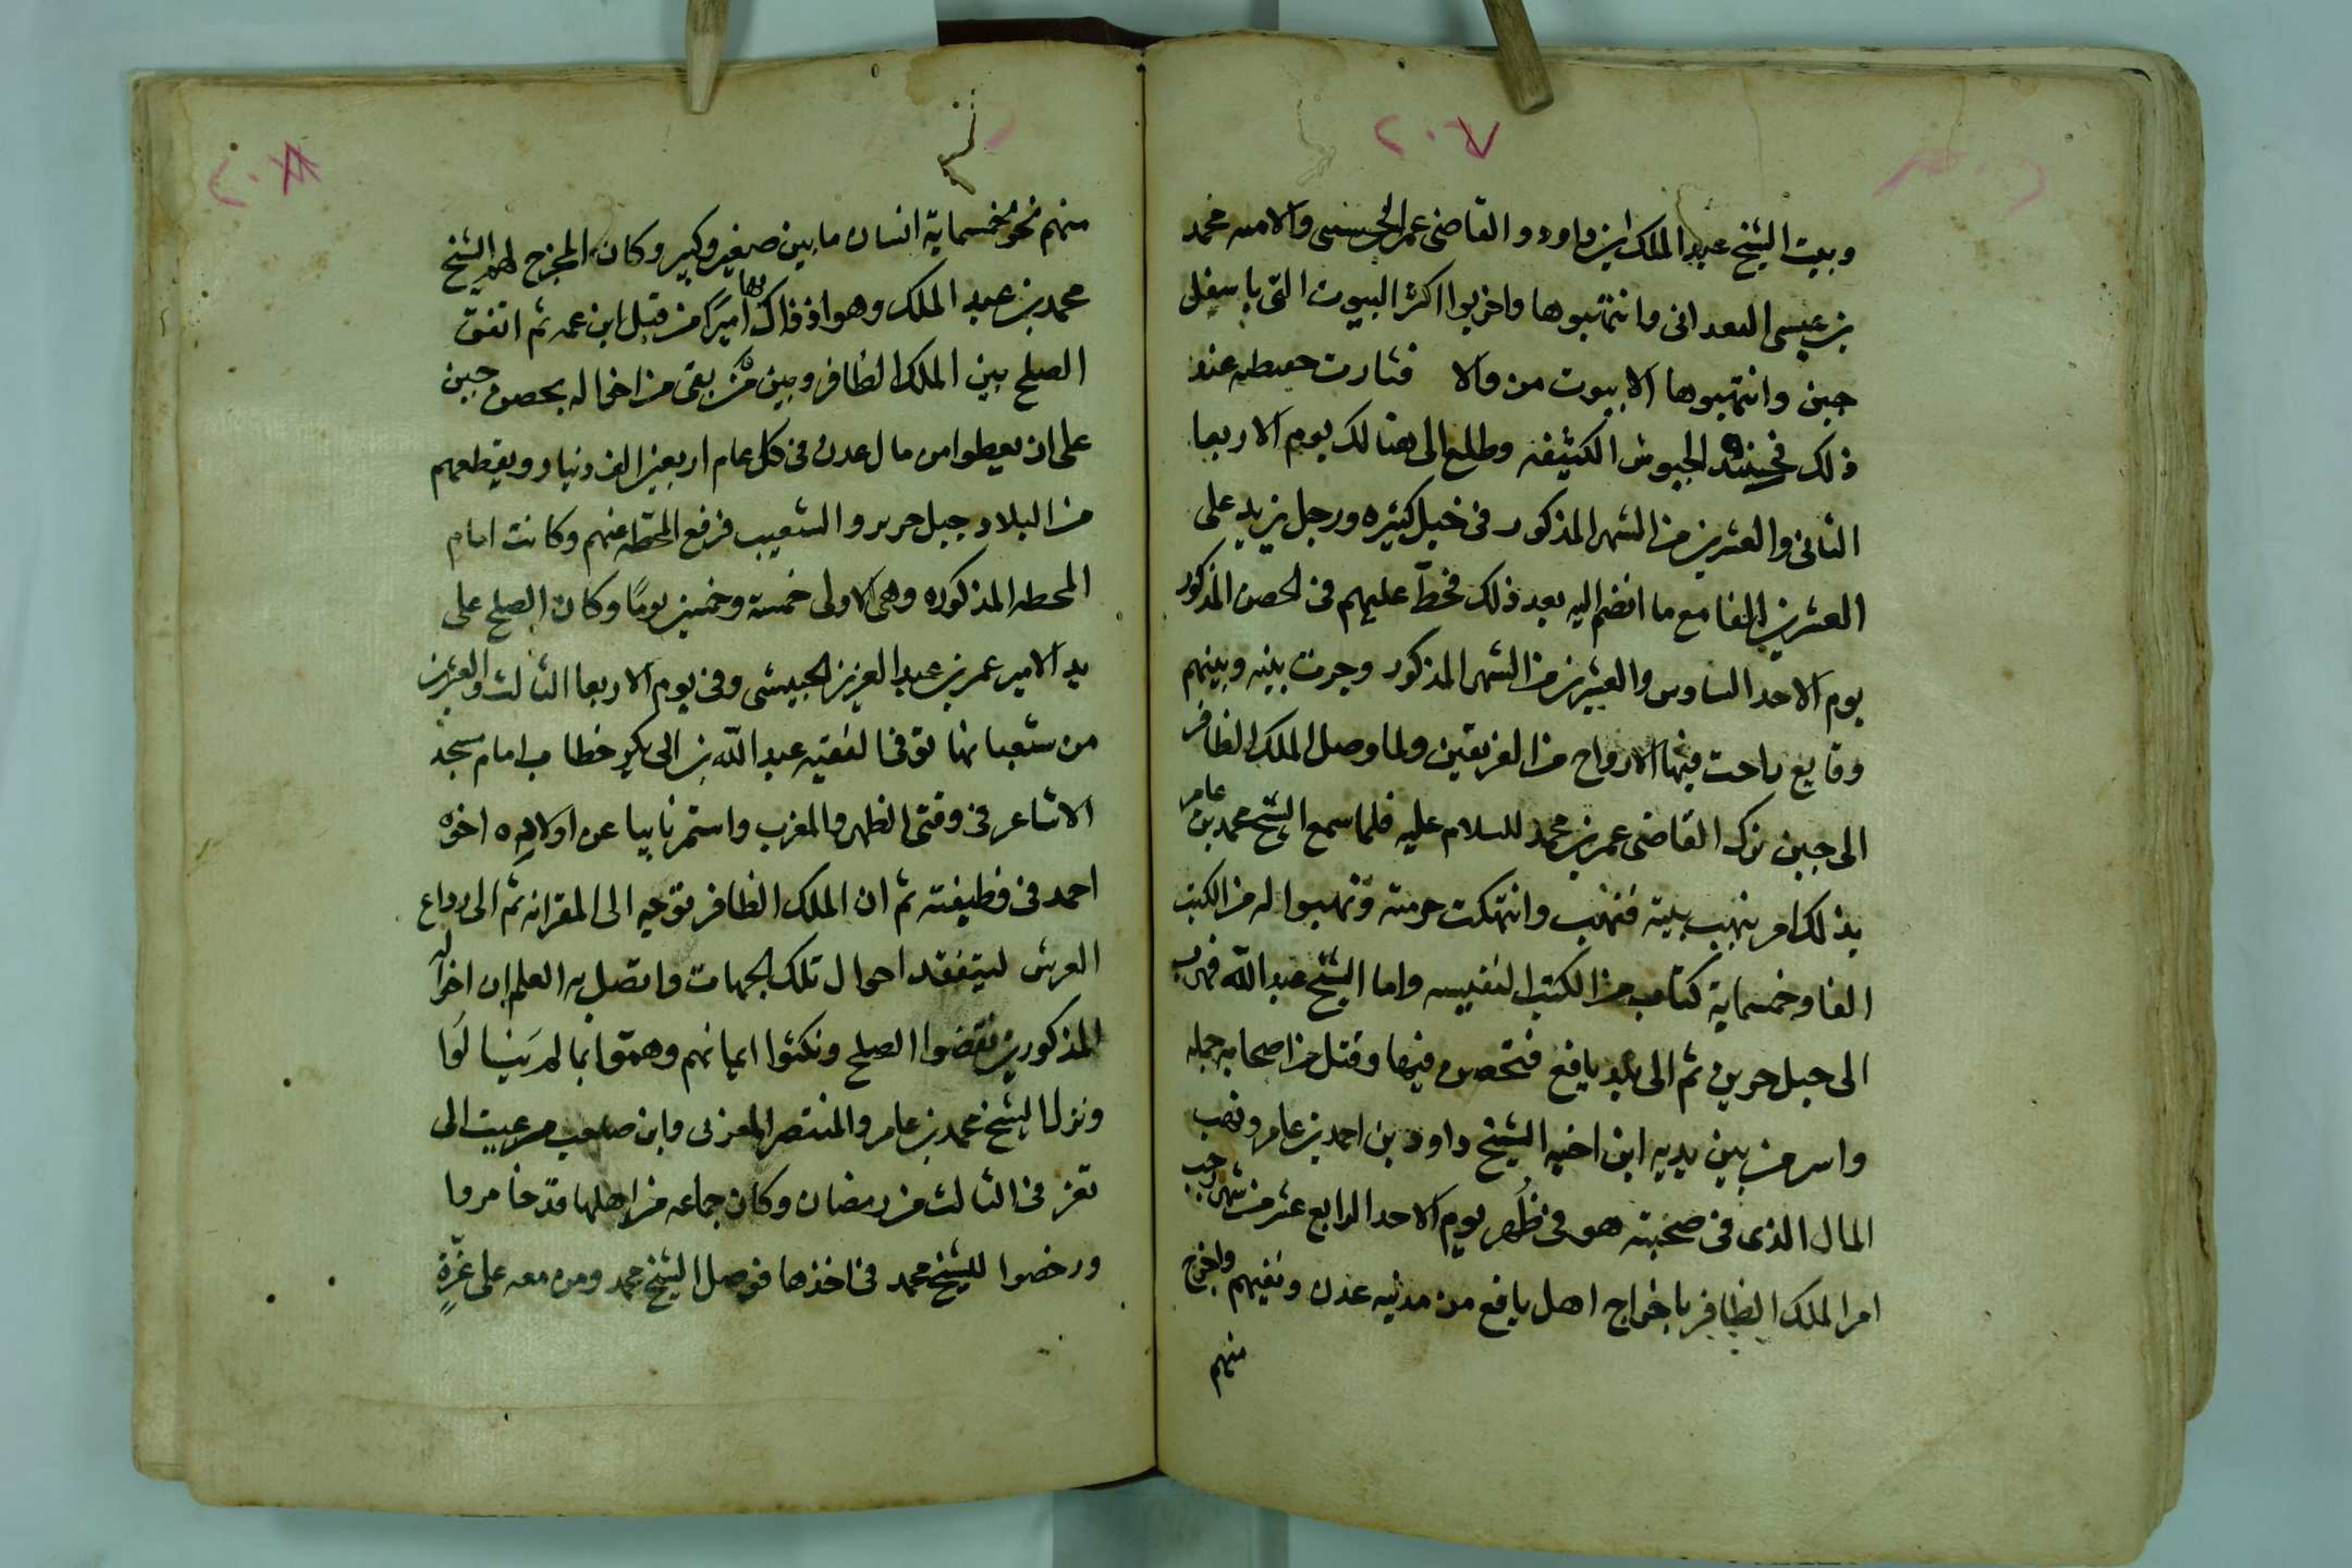 ٢٠٧
وبيت الشيخ عبد الملك ابن داود والقاضي عمر الجـ والامير محمد
بن عيسى البعداني وانتهبوها واخربوا اكثر البيوت التي باسفل
جبن وانتهبوها الا بيوت من والا فثارت حفيظته عند
ذلك فجند الجيوش الكثيفه وطلع الى هنالك يوم الاربعا
الثاني والعشرين من الشهر المذكور في خيل كثيره ورجل يزيد على
العشرين الفا مع ما انضم اليه بعد ذلك فحطّ عليهم في الحصن المذكور
يوم الاحد السادس والعشرين من الشهر المذكور وجرت بينه وبينهم
وقايع راحت فيها الارواح من الفريقين ولما وصل الملك الظافر
الى جبن نزل القاضي عمر بن محمد للسلام عليه فلما سمع الشيخ محمد بن عامر
بذلك امر بنهب بيته فنهب وانتهكت حرمته ونهبوا له من الكتب
الفا وخمسماية كتاب من الكتب النفيسه واما الشيخ عبد الله فهرب
الى جبل حرير ثم الى بلد يافع فتحصن فيها وقتل من اصحابه جمله
واسر من بين يديه ابن اخيه الشيخ داود بن احمد بن عامر ونهب
المال الذي في صحبته هو في ظهر يوم الاحد الرابع عشر من شهر رجب
امر الملك الظافر باخراج اهل يافع من مدنيه عدن ونفيهم واخرج
منهم
٢٠٨
منهم نحو خمسماية انسان ما بين صغير وكبير وكان المخرج لهم الشيخ
محمد بن عبد الملك وهو اذ ذاك بها اميرًا من قبل ابن عمه ثم اتفق
الصلح بين الملك الظافر وبين مَن بقي من اخواله بحصن جبن
على ان يعطوا من مال عدن في كل عام اربعين الف دينار ويقطعهم
من البلاد جبل حرير والشعيب فرفع المحطه عنهم وكانت امام
المحطه المذكوره وهي الاولى خمسة وخمسين يومًا وكان الصلح على
يد الامير عمر بن عبد العزيز الحبيشي وفي يوم الاربعا الثالث والعشرين
من شعبانها توفى الفقيه عبد الله بن ابي بكر خطاب امام مسجد
الاشاعر في وقتي الظهر والمغرب واستمر نايبا عن اولاده اخوه
احمد في وظيفته ثم ان الملك الظافر توجه الى المقرانه ثم الى رداع
العرش ليتفقد احوال تلك الجهات واتصل به العلم ان اخواله
المذكورين نقضوا الصلح ونكثوا ايمانهم وهمّوا بما لم يَنالوا
ونزل الشيخ محمد بن عامر والمنتصر المعزبي وابن صاحب مرعيت الى
تعز في الثالث من رمضان وكان جماعه من اهلها قد خامروا
ورخصوا للشيخ محمد في اخذها فوصل الشيخ محمد ومن معه على غِرَّةٍ